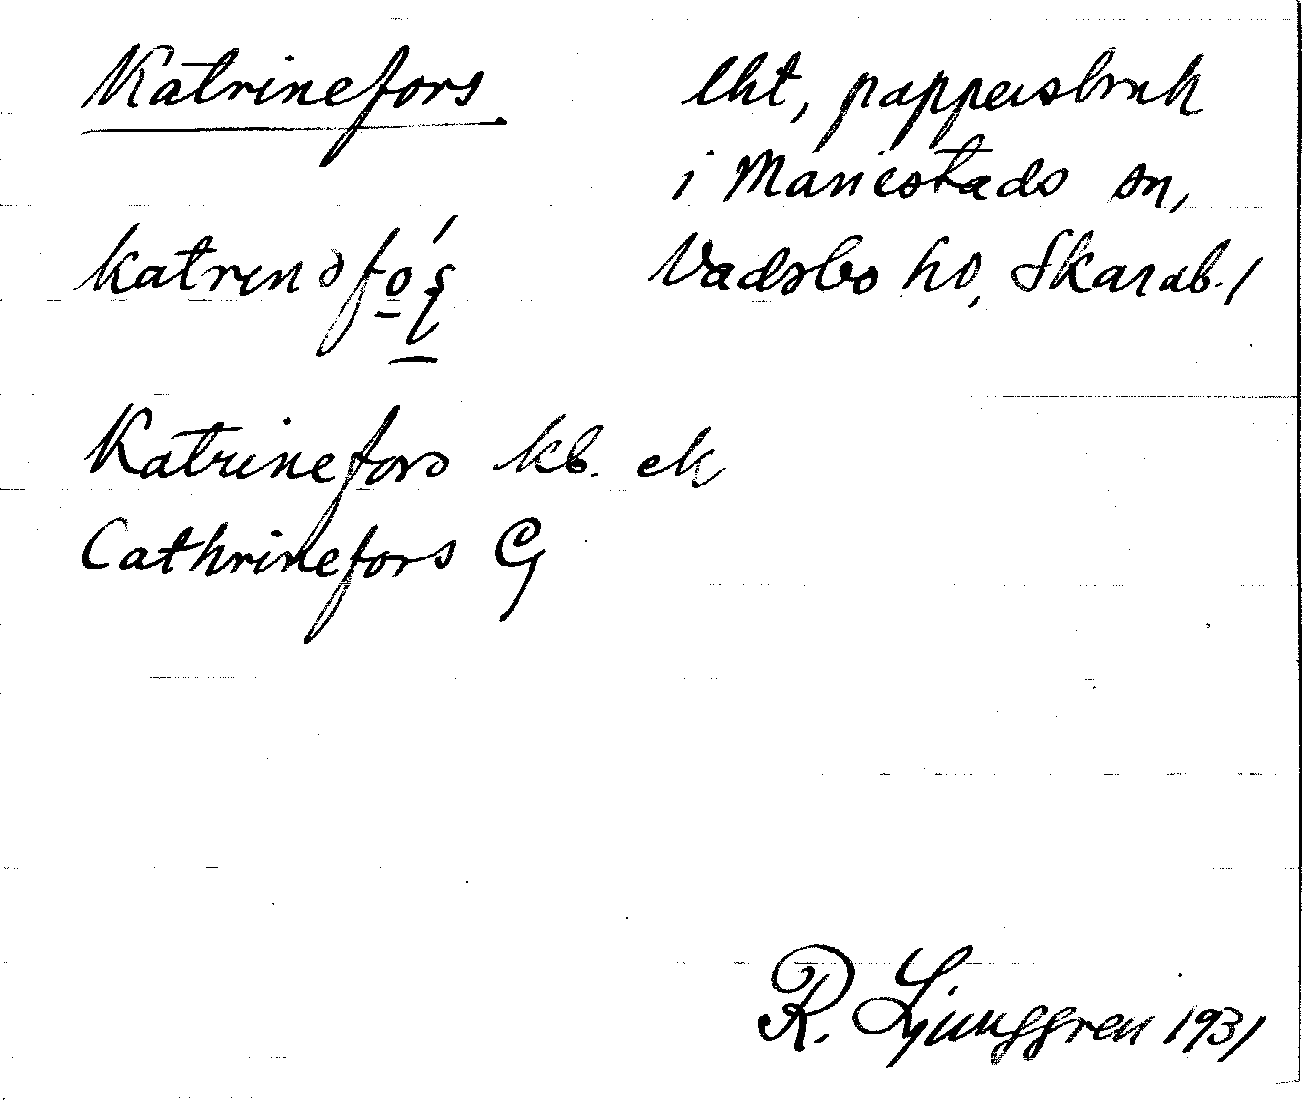 Katrinefors
lht, pappersbruk
i Mariestads sn,
Vadsbo hd, Skarab. l
Katrinefors kb. ek
Cathrinefors G
R. Ljunggren 1931